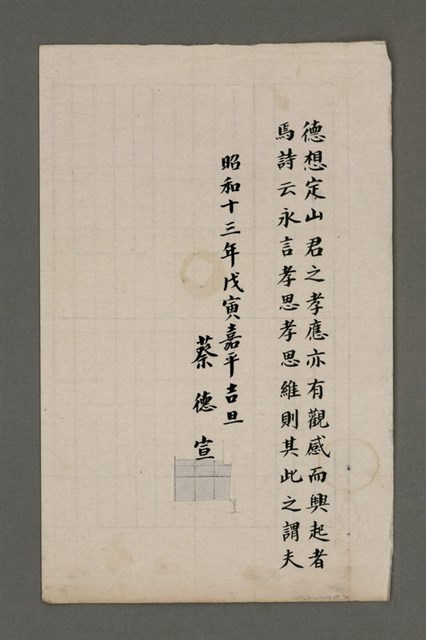 德想定山君之孝應亦有觀感而興起者
焉詩云永言孝思孝思維則其此之謂夫
昭和十三年戊寅嘉平吉旦
蔡德宣